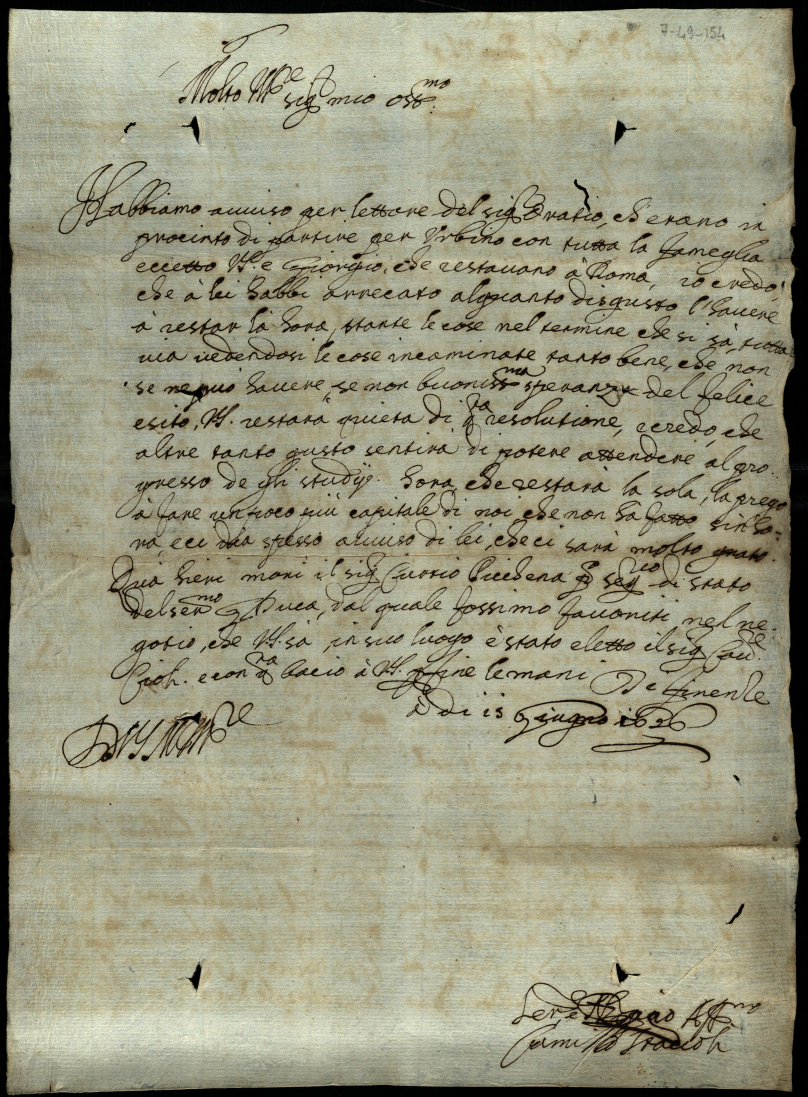 7-49-154
Molto Ill.re
sig.r mio oss.mo
Habbiamo auuiso per lettere del sig.r Oratio, ch'erano in
procinto di partire per Vrbino con tutta la fameglia
eccetto V.S. e Giorgio, che restauano à Roma, io credo,
che à lei habbi arrecato alquanto disgusto l'hauere
à restar là hora, stante le cose nel termine che si sà, tutta
uia uedendosi le cose incaminate tanto bene, che non
se ne può hauere, se non buoniss.ma speranza del felice
esito, V.S. restarà quieta di q.ta resolutione, e credo, che
altre tanto gusto sentirà di potere attendere al pro
gresso de gli studij. hora, che restarà là sola, la prego
à fare un poco più capitale di noi che non hà fatto sin'ho
ra, e ci dia spesso auuiso di lei, che ci sarà molto grato.
Quà hieri morì il sig.r Curtio Picchena p.o seg.rio di stato
del ser.mo G Duca, dal quale fossimo fauoriti nel ne
gotio, che V.S. sà, in suo luogo è stato eletto il sig.r Cau.re
Cioli. e con q.ta bacio à V.S. p fine le mani Di Firenze
à di 15 Giugno 1626
Di V.S. Molto Ill.re
Ser.e Aff.mo
Camillo Staccoli